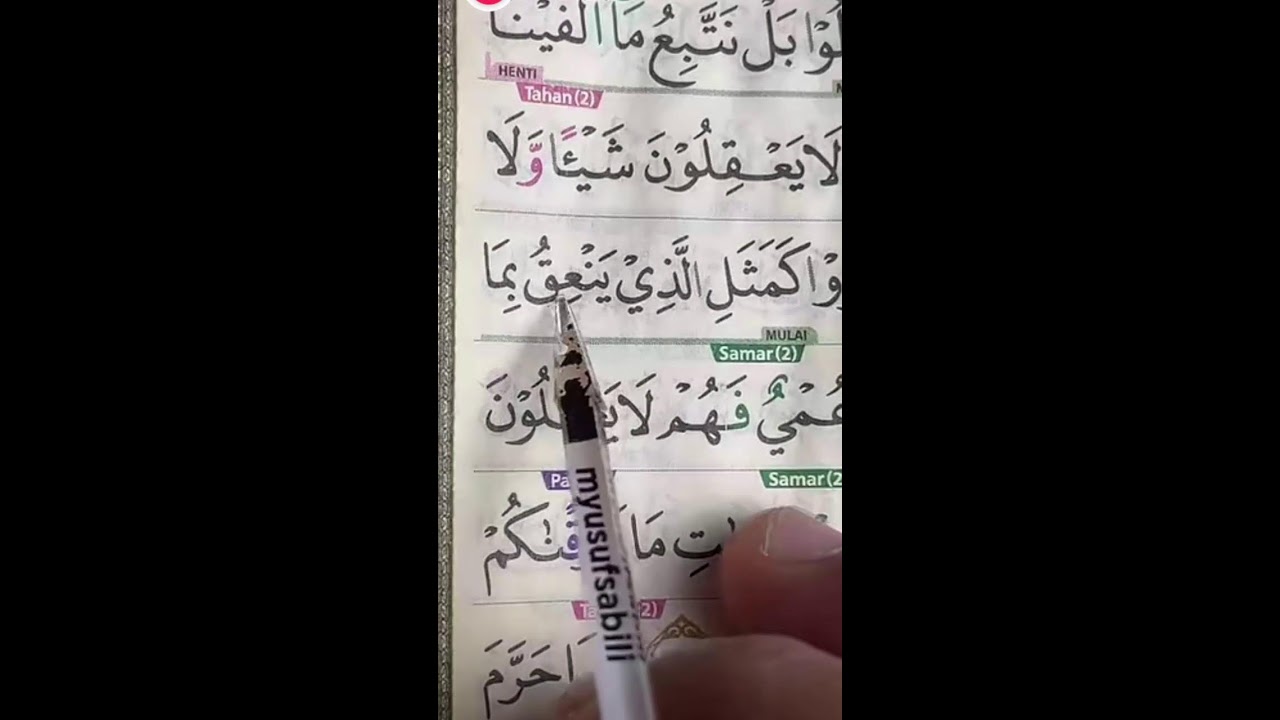 لُوْا بَلْ نَتَّبِعُ مَا أَلْفَيْنَا
HENTI
Tahan (2)
لَا يَعْقِلُوْنَ شَيْـًٔا وَّلَا
وْا كَمَثَلِ الَّذِيْ يَنْعِقُ بِمَا
MULAI
Samar (2)
عُمْيٌ فَهُمْ لَا
Samar (2
مَا
حَرَّمَ
myusufsabili